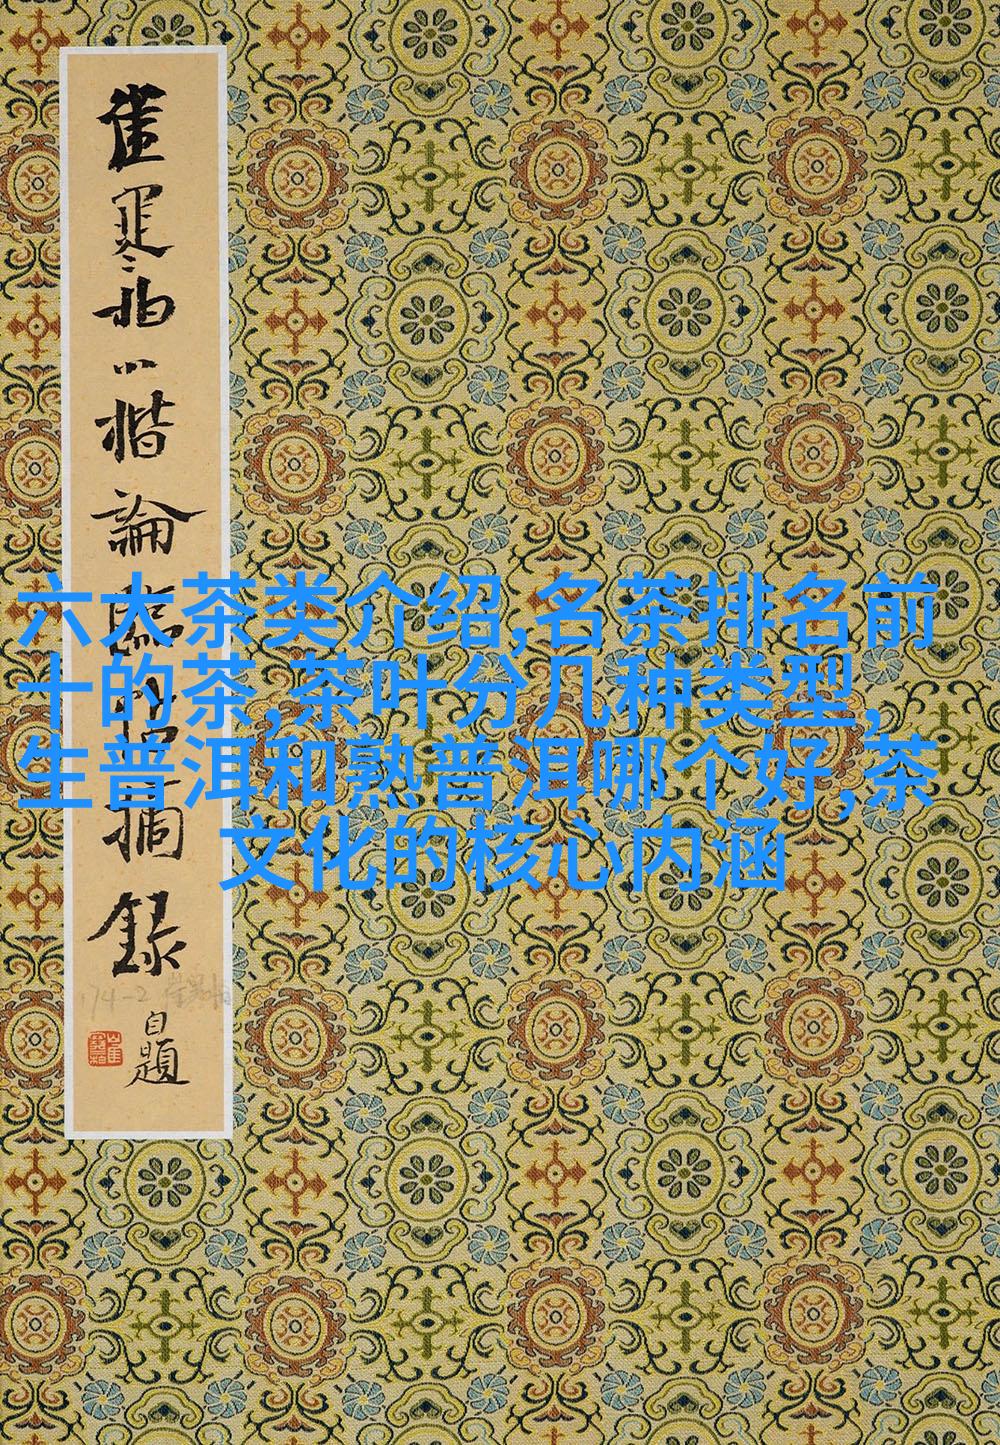 崔小楷論臨摘錄
自題
174-2
六大茶类介绍,名茶排名前
十的茶,茶叶分几种类型,
生普洱和熟普洱哪个好,茶
文化的核心内涵